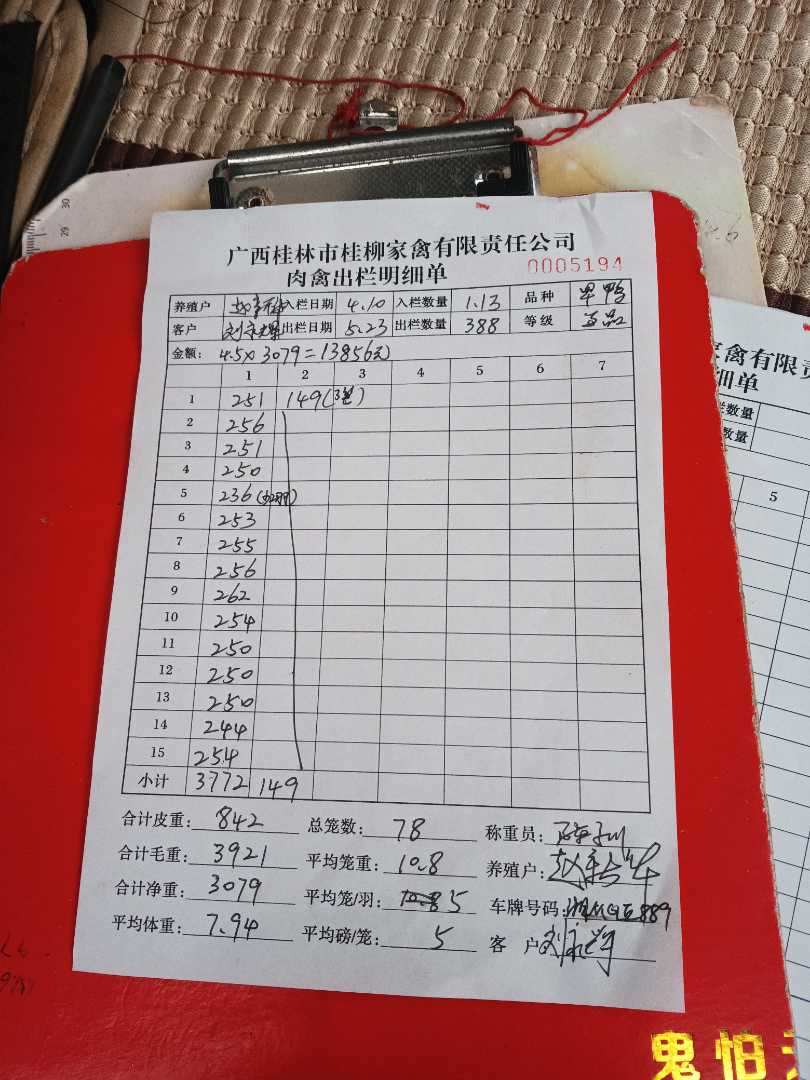 广西桂林市桂柳家禽有限责任公司
肉禽出栏明细单 0005194
养殖户 入栏日期 4.10 入栏数量 1.13 品种 旱鸭
客户 出栏日期 5.23 出栏数量 388 等级
金额: 4.5×3079=13856元
1 2 3 4 5 6 7
1 251 149(3笼)
2 256
3 251
4 250
5 236
6 253
7 255
8 256
9 262
10 254
11 250
12 250
13 250
14 244
15 254
小计 3772 149
合计皮重: 842 总笼数: 78 称重员:
合计毛重: 3921 平均笼重: 10.8 养殖户:
合计净重: 3079 平均笼/羽: 5 车牌号码:
平均体重: 7.94 平均磅/笼: 5 客户
家禽有限责
细单
栏数量
数量
5
鬼怕
30
29